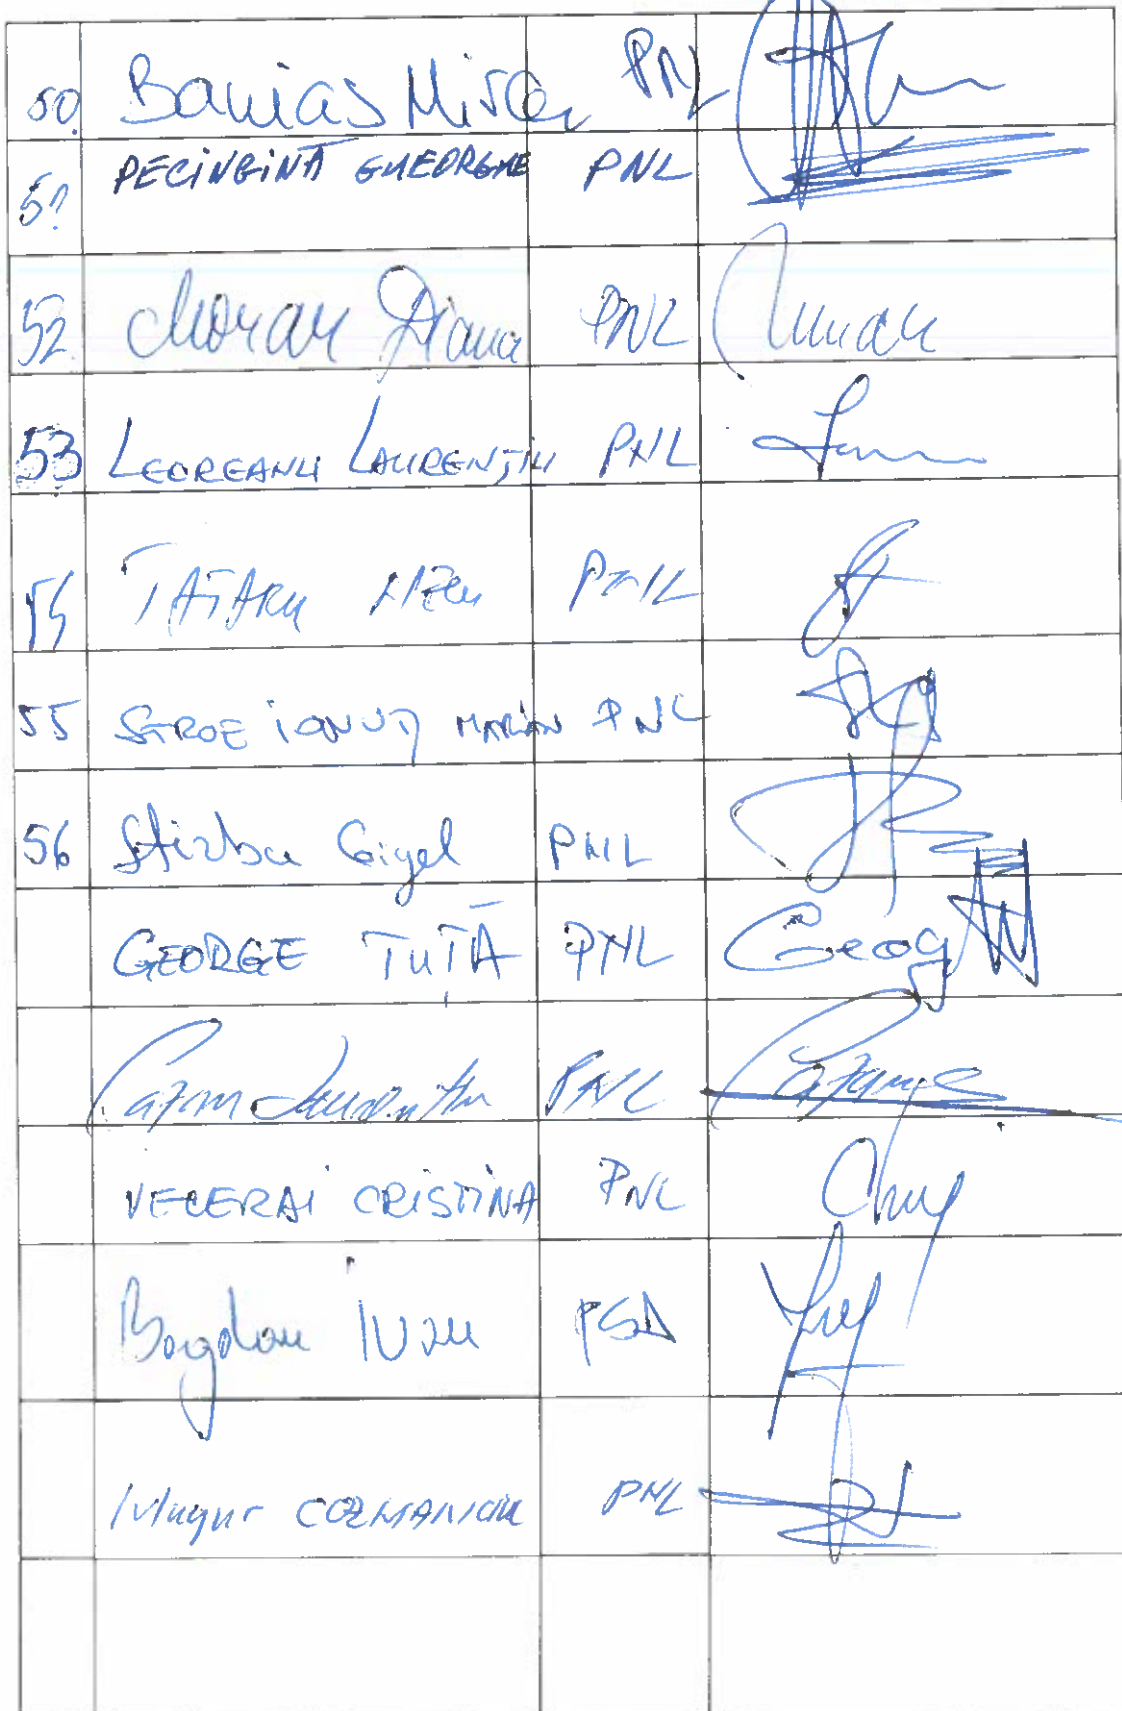 50. Banias Mircea PNL
51 PECINGINĂ GHEORGHE PNL
52. Morar Diana PNL
53 LEOREANU LAURENȚIU PNL
54 TĂTARU NELU PNL
55 STROE IONUȚ MARIAN PNL
56 Știrbu Gigel PNL
GEORGE TUȚĂ PNL Georg
Cazan Laurentiu PNL
VECERDI CRISTINA PNL
Bogdan Ivan PSD
Mugur COZMANCIUC PNL